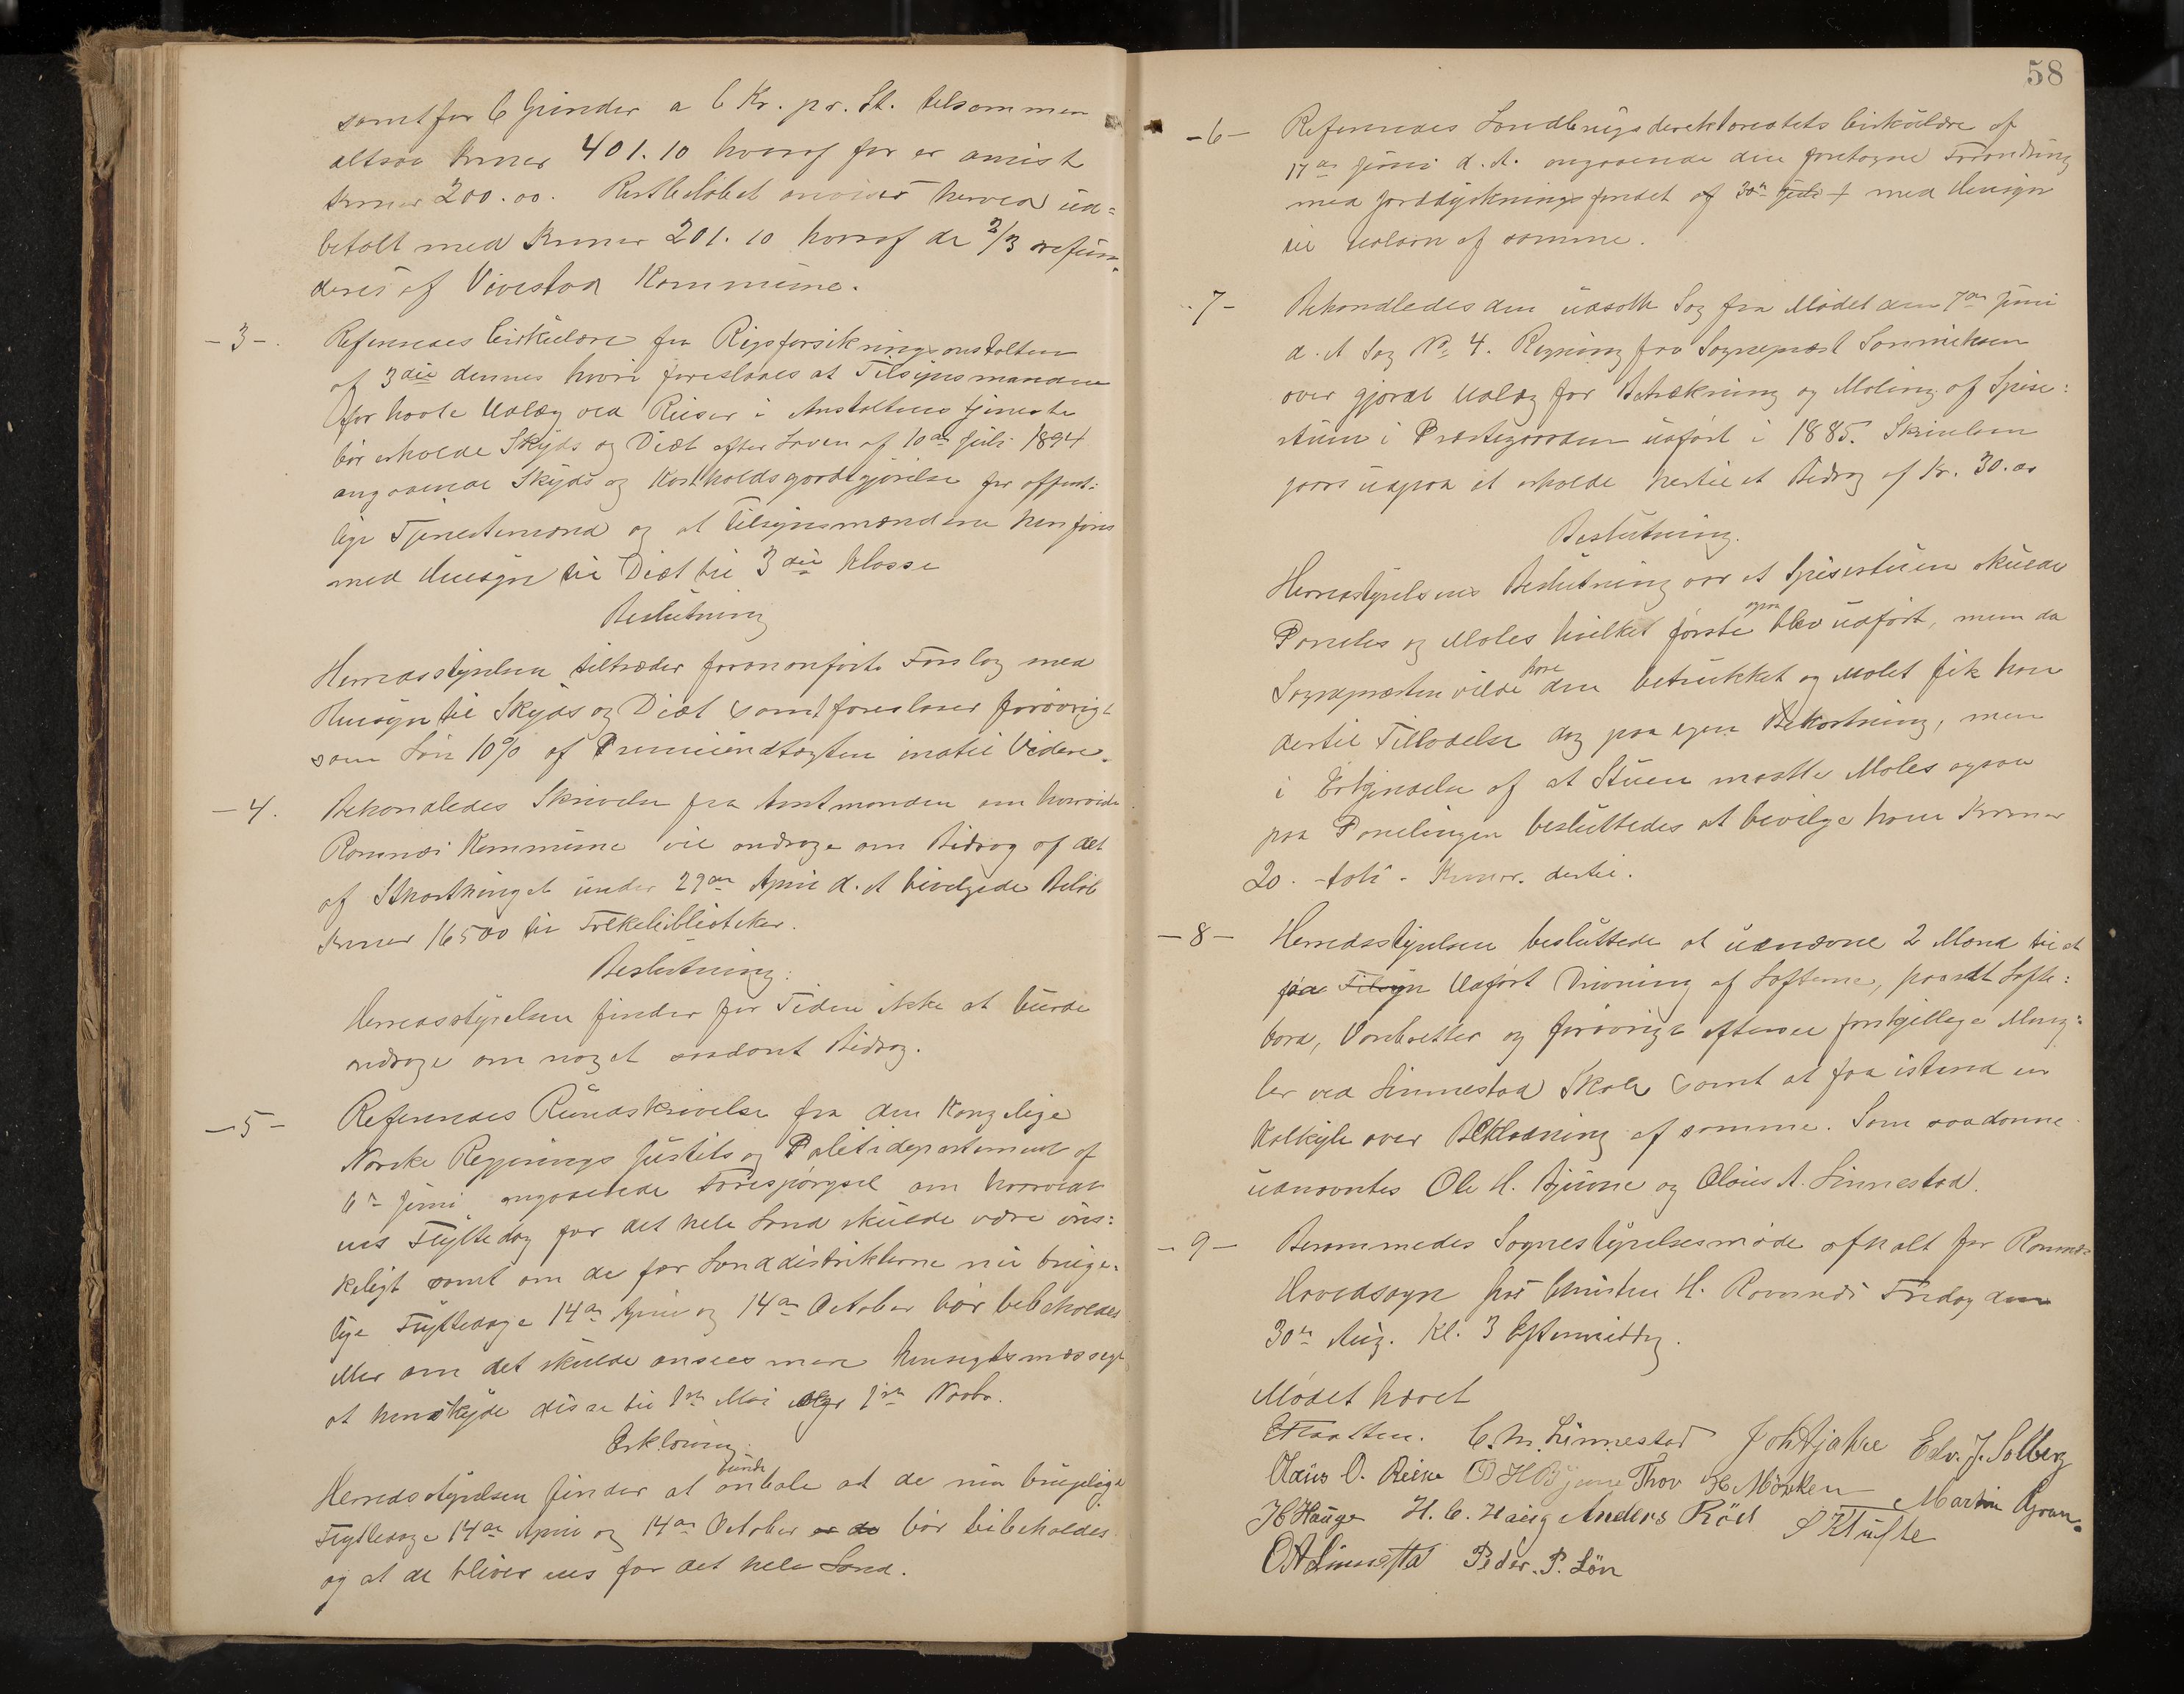 samt for 6 Grinder a 6 Kr. pr. St. tilsammen
altsaa Kroner 401.10 hvoraf før er anvist
Kroner 200.00. Restbeløbet anvises herved ud=
betalt med Kroner 201.10 hvoraf de 2/3 refun=
deres af Vivestad Kommune.
-3-. Refereredes Cirkulære fra Rigsforsikringsanstalten
af 3die dennes hvori foreslaaes at Tilsynsmændene
for havte Udlæg ved Reiser i Anstaltens tjeneste
bør erholde Skyds og Diæt efter Loven af 10de Juli 1894
angaaende Skyds og Kostholdsgodtgjørelse for offent=
lige Tjenestemænd og at Tilsynsmændene henføres
med Hensyn til Diæt til 3die Klasse
Beslutning
Herredsstyrelsen tiltræder foranførte Forslag med
Hensyn til Skyds og Diæt samt foreslaaer forøvrigt
som Løn 10% af Præmieindtægten indtil Videre.
-4. Behandledes Skrivelse fra Amtmanden om hvorvidt
Ramnæs Kommune vil andrage om Bidrag af det
af Storthinget under 29de April d. A bevilgede Beløb
Kroner 16500 til Folkebibliotheker.
Beslutning.
Herredsstyrelsen finder for Tiden ikke at burde
andrage om noget saadant Bidrag.
-5- Refereredes Rundskrivelse fra den Kongelige
Norske Regjerings Justits og Politidepartement af
6te Juni angaaende Forespørgsel om hvorvidt
ens Flyttedag for det hele Land skulde være øns=
keligt samt om de for Landdistrikterne nu bruge=
lige Flyttedage 14de April og 14de October bør bibeholdes
eller om det skulde ansees mere hensigtsmæssigt
at henskyde disse til 1ste Mai og 1ste Novbr.
Erklæring
Herredsstyrelsen finder at burde anbefale at de nu brugelige
Flyttedage 14de April og 14de October er de bør bibeholdes
og at de bliver ens for det hele Land.
58
-6- Refereredes Landbrugsdirektoratets Cirkulære af
17de Juni d. A. angaaende den foretagne Forandring
med Jorddyrkningsfondet af 30te Juli med Hensyn
til Udlaan af samme.
-7- Behandledes den udsatte Sag fra Mødet den 7de Juni
d. A Sag No 4. Regning fra Sogneprest
over gjordt Udlæg for Betrækning og Maling af Spise=
stuen i Præstegaarden udført i 1885. Skrivelsen
gaar ud paa at erholde hertil et Bidrag af Kr. 30.00
Beslutning.
Herredsstyrelsens Beslutning var at Spisestuen skulde
Paneles og Males hvilket første ogsaa blev udført, men da
Sognepresten vilde have den betrukket og Malet fik han
dertil Tilladelse dog paa egen Bekostning, men
i Erkjendelse af at Stuen maatte Males ogsaa
paa Panelingen besluttedes at bevilge ham Kroner
20. - toti - Kroner. dertil.
-8- Herredsstyrelsen besluttede at udnævne 2 Mænd til at
faa Tilsyn Udført Drivning af Lofterne, paasat Lofte=
bord, Vandbretter og forøvrigt eftersee forskjellige Mang=
ler ved Linnestad Skole samt at faa istand en
Kalkyle over Beklædning af samme. Som saadanne
udnævntes Ole H. Bjune og Olaus A. Linnestad.
-9- Berammedes Sognestyrelsesmøde afholt for Ramnæs
Hovedsogn hos Christen H. Ramnæs Fredag den
30te Aug. Kl. 3 Eftermiddag.
Mødet hævet
C. M. Linnestad Edv. J. Solberg
Olaus O. O H Bjune Thor Martin Gran.
H Hauge H. C. Haug Anders Röd S Klufte
O A Linnestad Peder. P. Lön